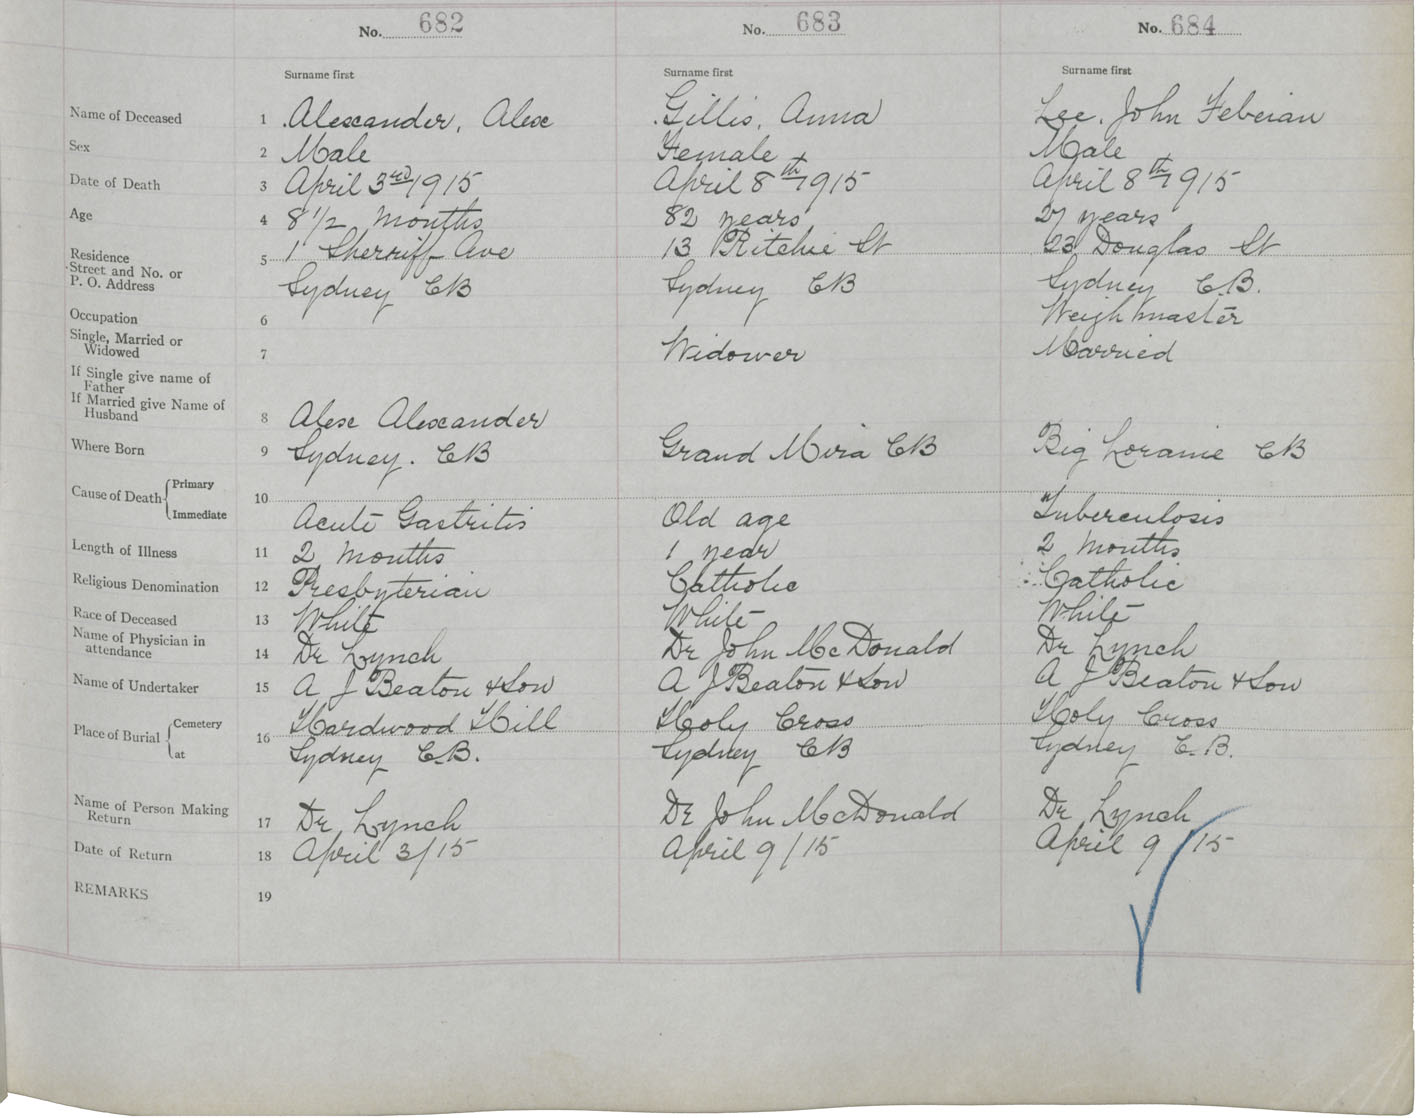 No. 682 No. 683 No. 684
Surname first Surname first Surname first
Name of Deceased 1 Alexander, Alex Gillis, Anna Lee, John Febeian
Sex 2 Male Female Male
Date of Death 3 April 3rd 1915 April 8th 1915 April 8th 1915
Age 4 8 1/2 months 82 years 27 years
Residence 5 1 Sherriff Ave 13 Ritchie St 23 Douglas St
Street and No. or
P. O. Address Sydney CB Sydney CB Sydney C.B.
Occupation 6 Weigh master
Single, Married or
Widowed 7 Widower Married
If Single give name of
Father
If Married give Name of
Husband 8 Alex Alexander
Where Born 9 Sydney. CB Grand Mira CB Big Loraine CB
Cause of Death Primary 10
Immediate Acute Gastritis Old age Tuberculosis
Length of Illness 11 2 months 1 year 2 months
Religious Denomination 12 Presbyterian Catholic Catholic
Race of Deceased 13 White White White
Name of Physician in
attendance 14 Dr Lynch Dr John McDonald Dr Lynch
Name of Undertaker 15 A J Beaton & Son A J Beaton & Son A J Beaton & Son
Place of Burial Cemetery 16 Hardwood Hill Holy Cross Holy Cross
at Sydney C.B. Sydney CB Sydney C.B.
Name of Person Making
Return 17 Dr Lynch Dr John McDonald Dr Lynch
Date of Return 18 April 3/15 April 9/15 April 9/15
REMARKS 19